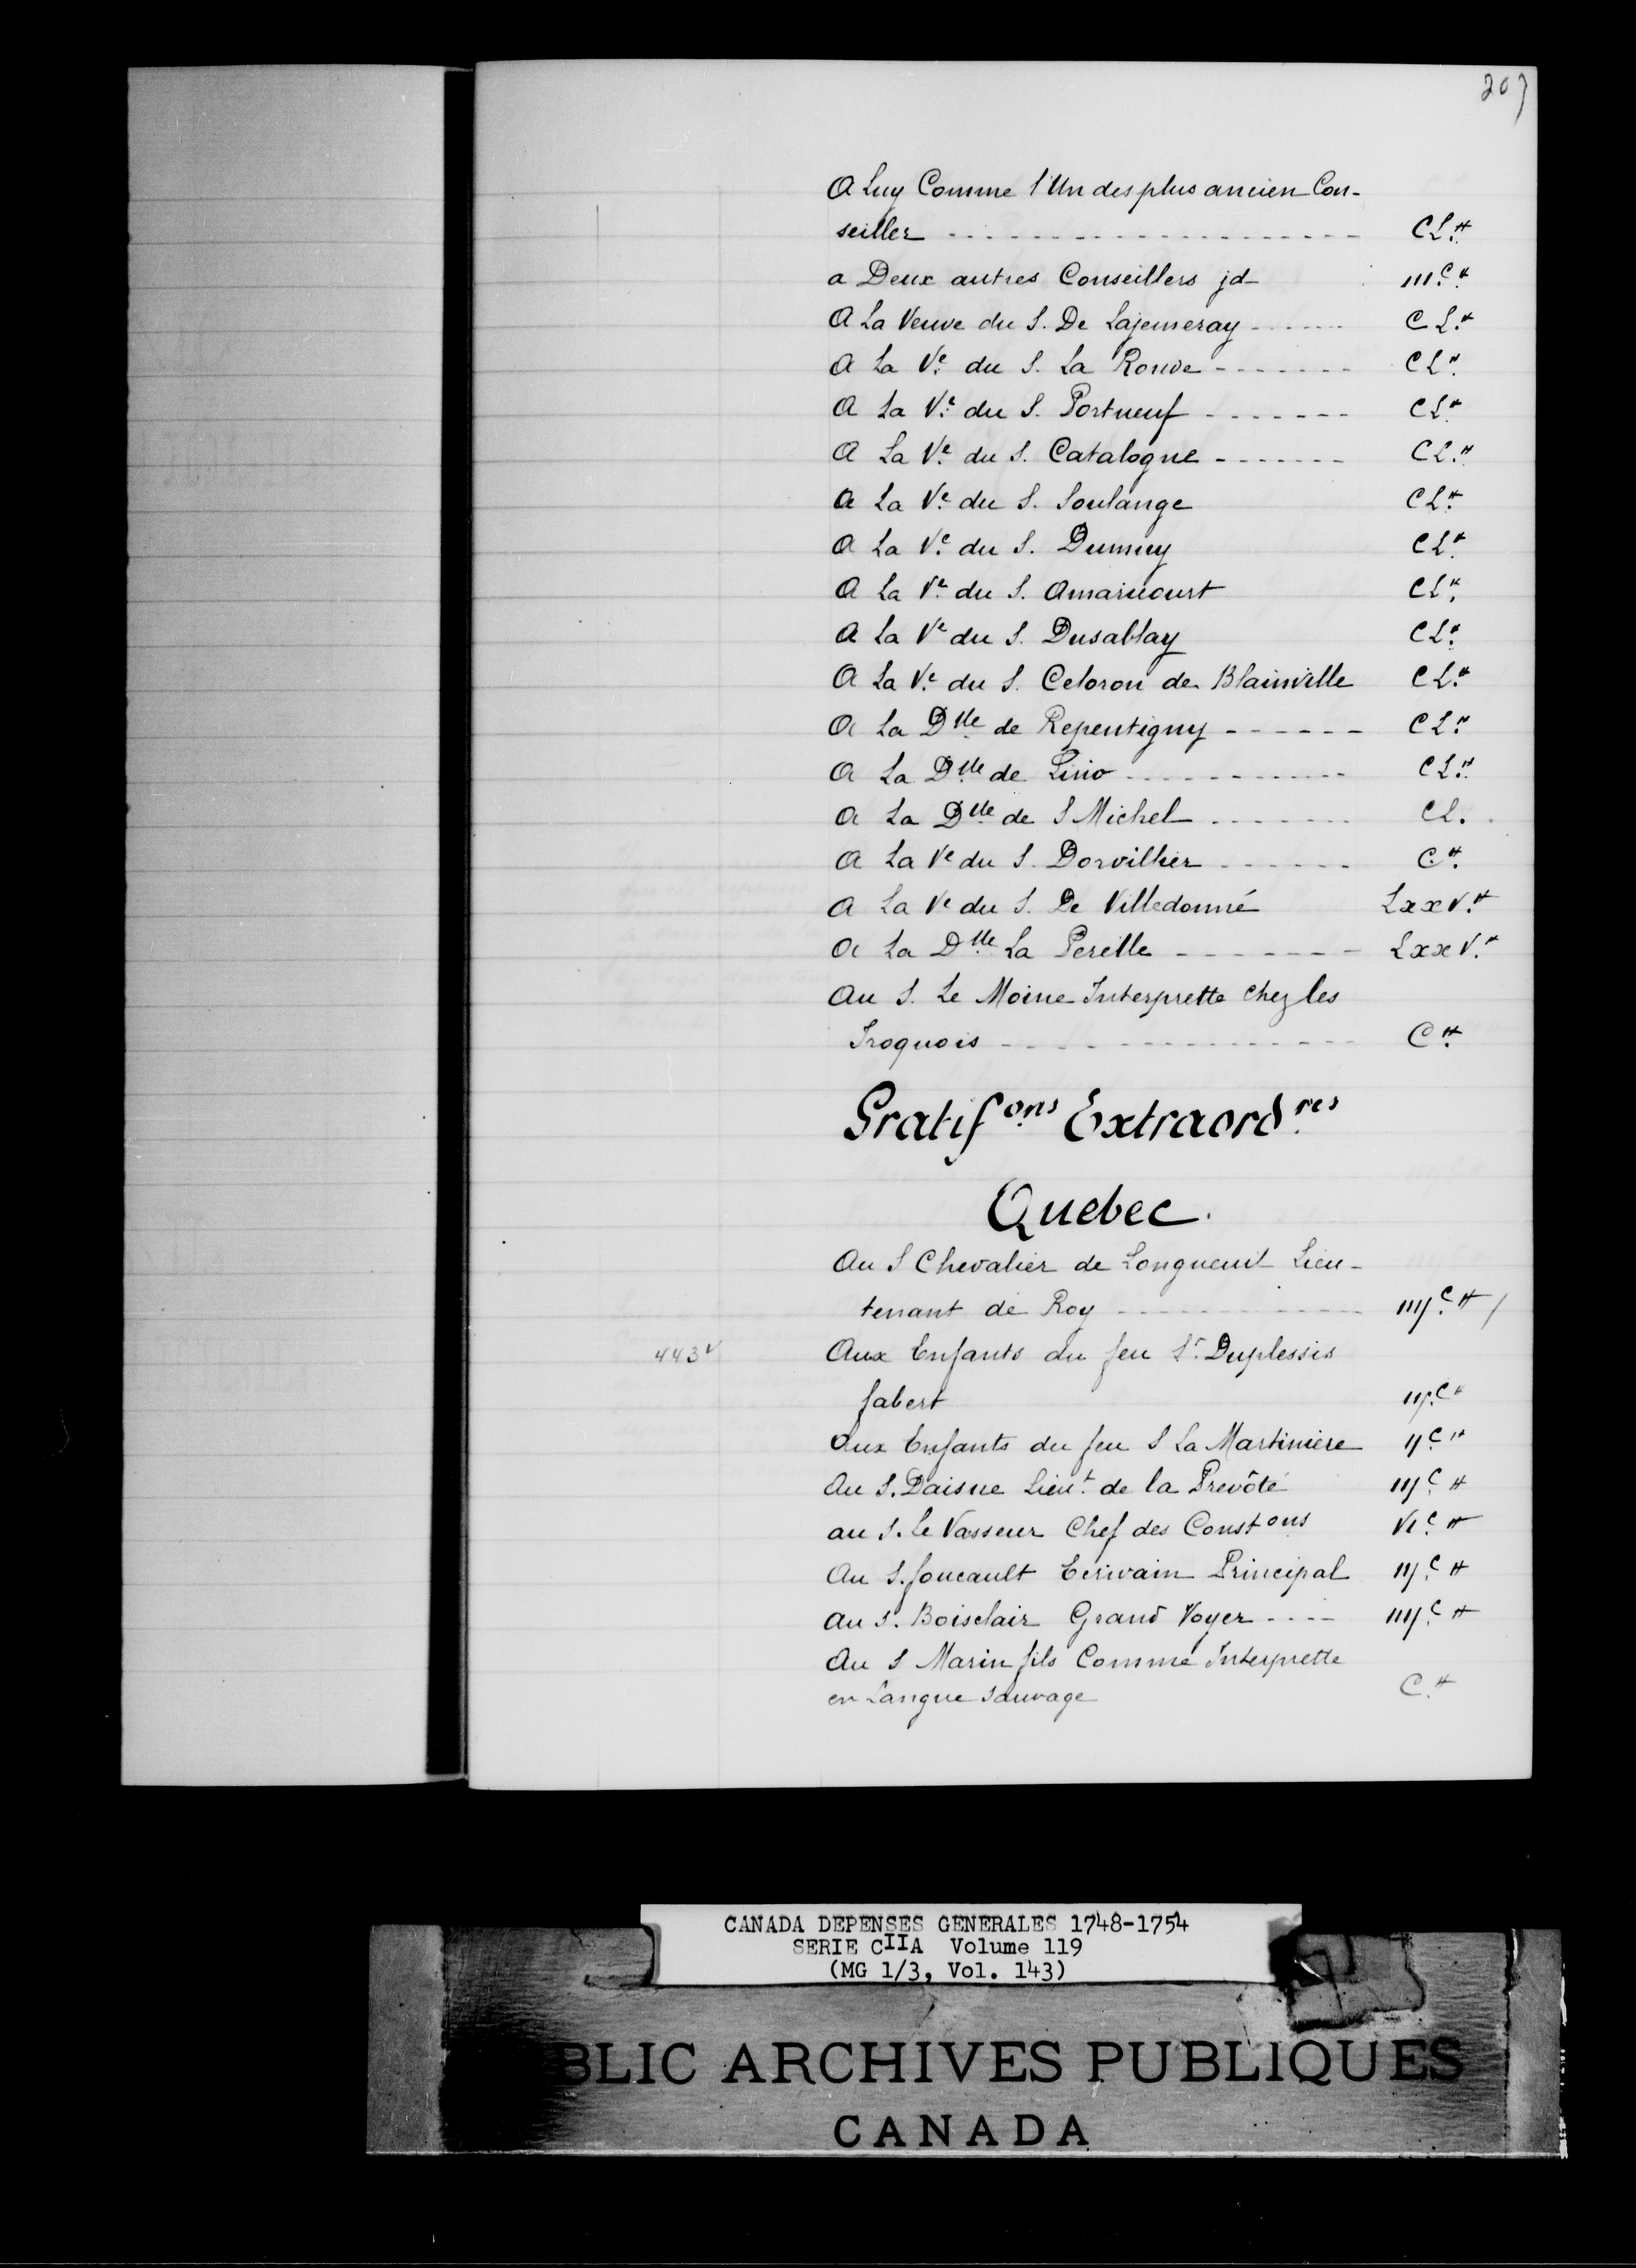 207
A Luy Comme l'Un des plus ancien Con-
seiller - - - - - - - - - - - - - - - - - - CL.#
a Deux autres Conseillers jd- III.C #
A La Veuve du S. De Lajemeray - - - - - - CL.#
A La Ve. du S. La Ronde - - - - - - - CL#
A La Ve. du S. Portneuf - - - - - - - CL#
A La Ve. du S. Catalogne - - - - - - - CL.#
A La Ve. du S. Soulange CL#
A La Ve. du S. Dumuy CL#
A La Ve. du S. Amaricourt CL#
A La Ve du S. Dusablay CL#
A La Ve. du S. Celoron de Blainville CL.#
A La Dlle de Repentigny - - - - - - CL#
A La Dlle de Lino - - - - - - - - - - - - CL.#
A La Dlle de S Michel - - - - - - - CL.
A La Ve du S. Dorvillier - - - - - - C.#
A La Ve du S. De Villedonné LxxV.#
A La Dlle La Perelle - - - - - - - LxxV.#
Au S. Le Moine Interprette chez les
Iroquois - - - - - - - - - - - - - - - - C#
Gratif.ons Extraord.res
Quebec.
Au S Chevalier de Longueuil Lieu-
tenant de Roy - - - - - - - - - - - - IIIJ.C #
443v Aux Enfants du feu Sr. Duplessis
fabert IIJ.C #
Aux Enfants du feu S La Martiniere IJ C #
Au S. Daisne Lieut. de la Prevôté IIJ C #
au S. Le Vasseur Chef des Constons VI C #
Au S. foucault Ecrivain Principal IIJ C #
au S. Boisclair Grand Voyer - - - - IIIJ C #
Au S Marin fils Comme Interprette
en Langue Sauvage C.#
CANADA DEPENSES GENERALES 1748-1754
SERIE CIIA Volume 119
(MG 1/3, Vol. 143)
BLIC ARCHIVES PUBLIQUES
CANADA